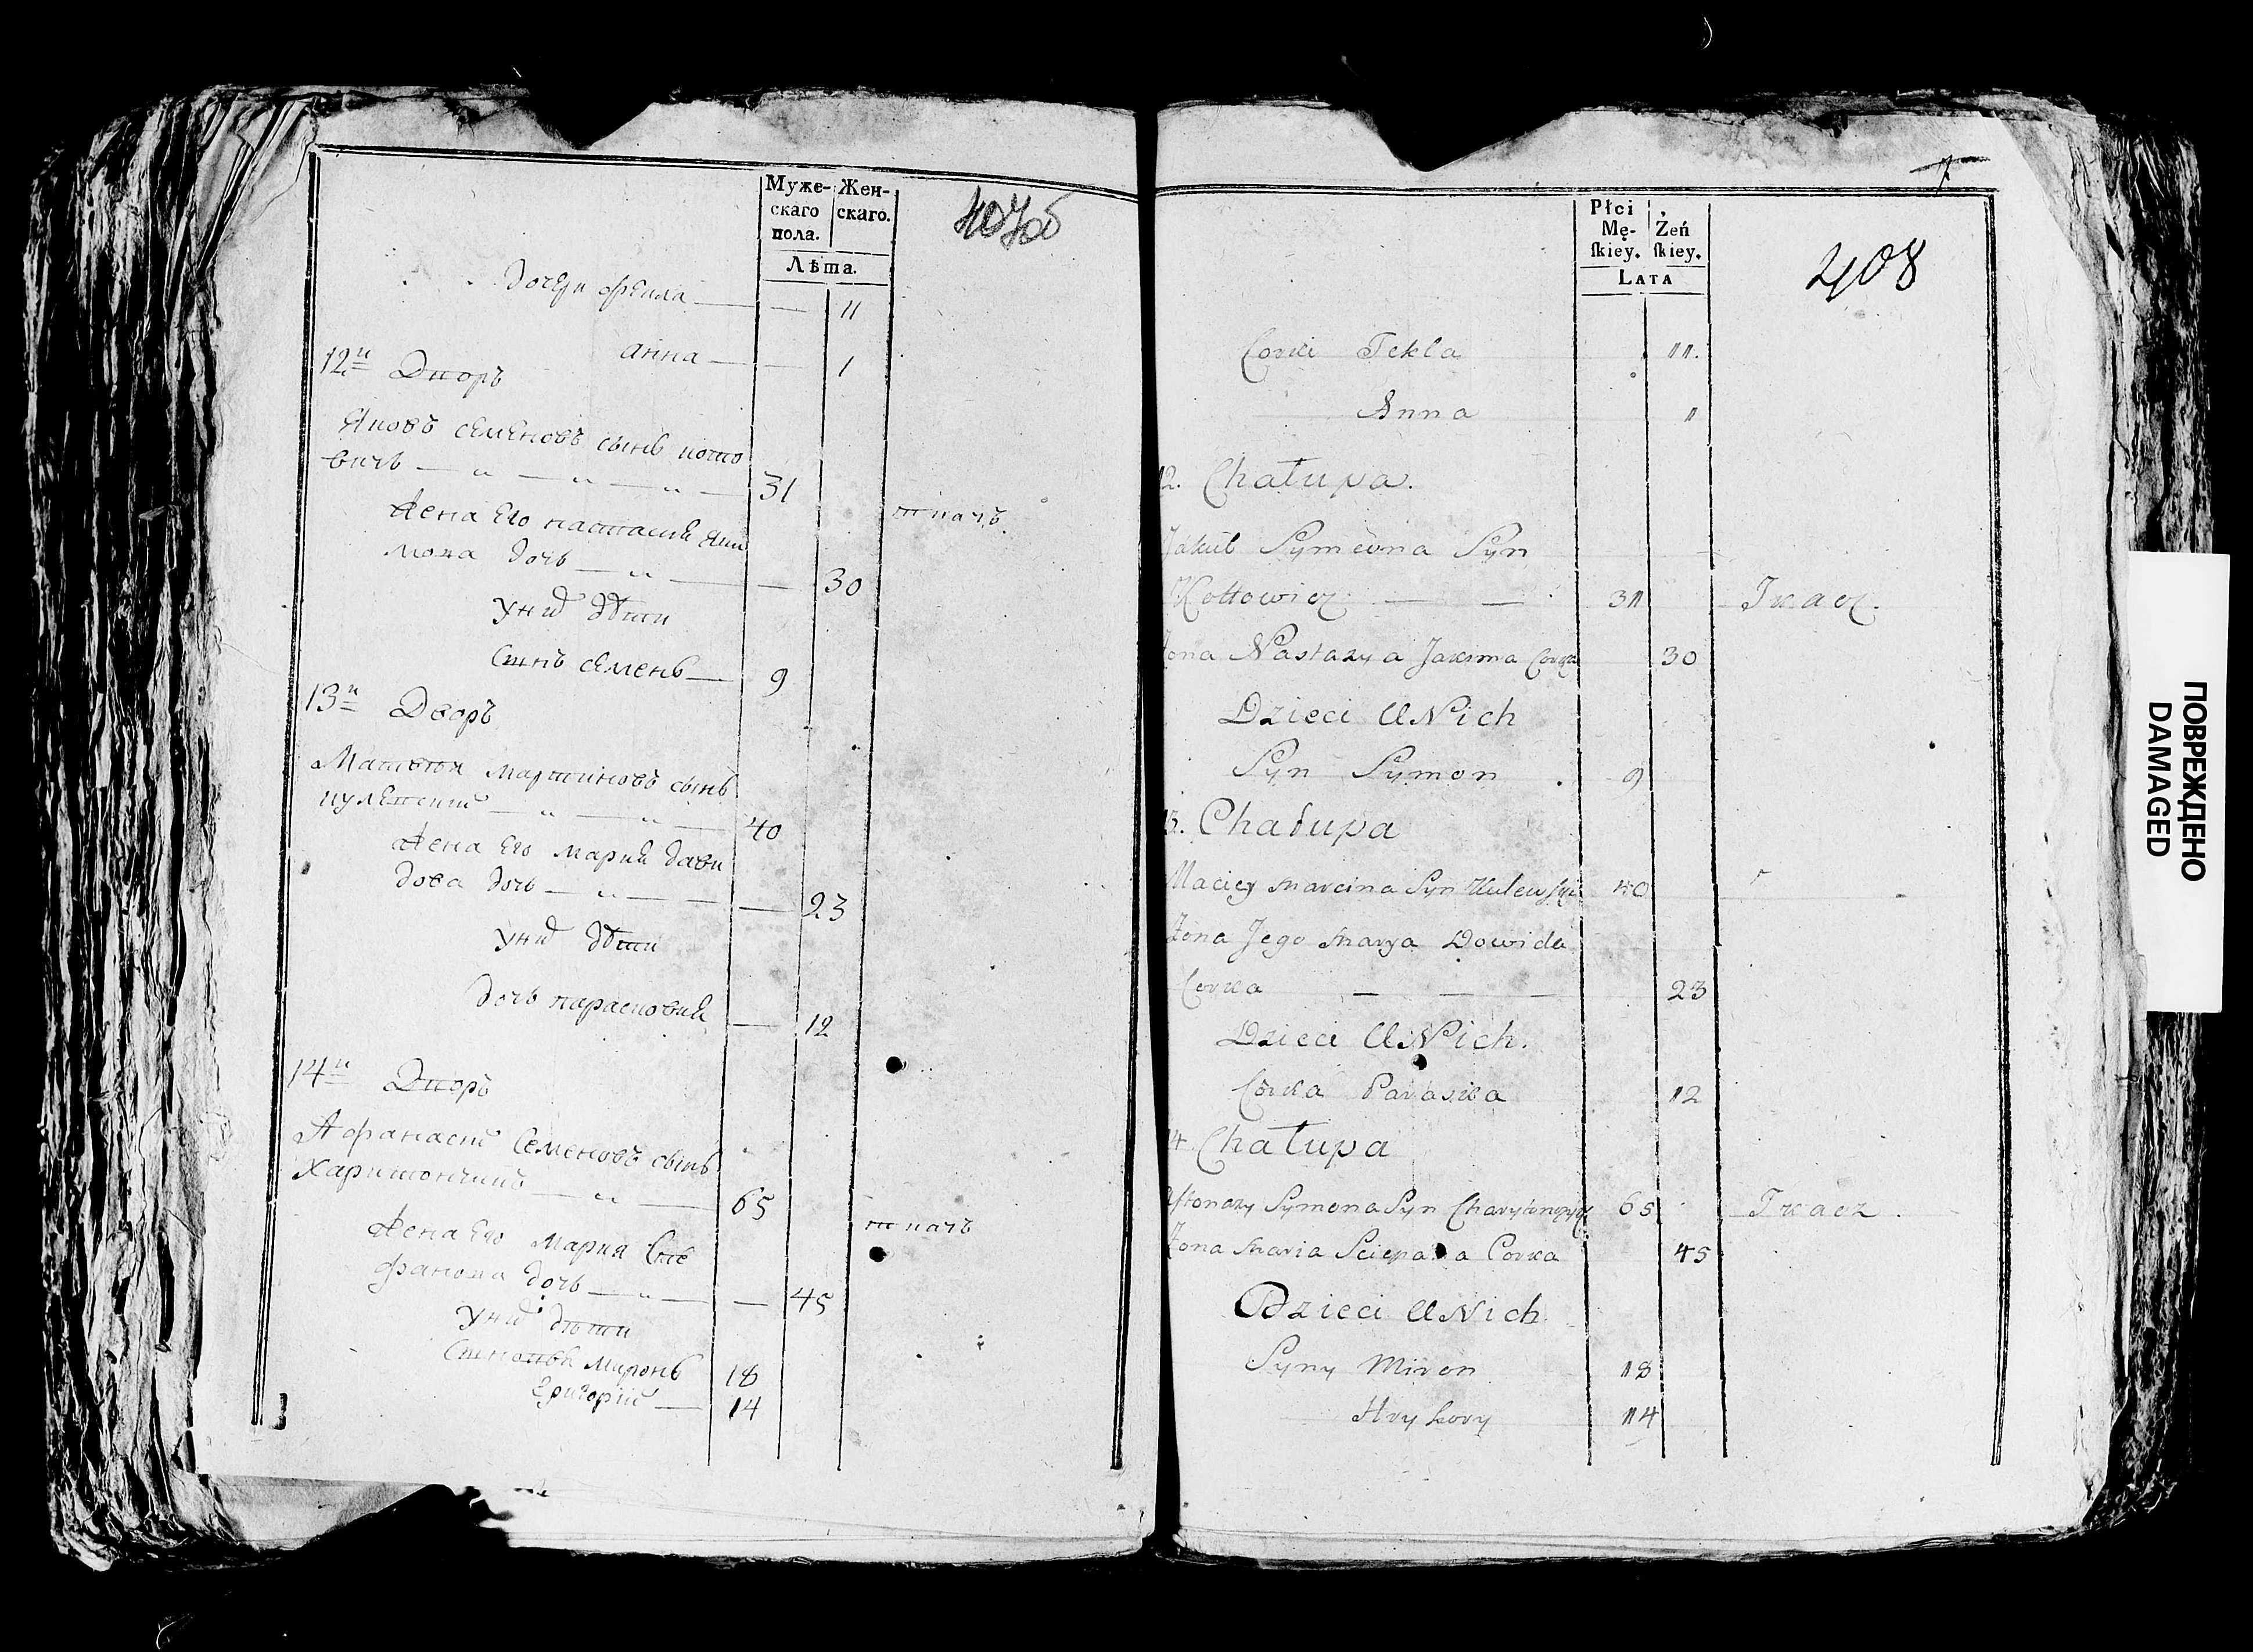 Муже-
скаго
пола.
Жен-
скаго.
Лѣта.
407об
дочери фекла — — 11
анна — — 1
12й Дворъ
Яковъ семеновъ сынъ котто
вичъ — „ — „ — „ — 31
ткачъ
Жена его настасия яки
мова дочь — „ — — 30
У них дѣти
Сынъ семенъ — 9
13й Дворъ
Матвей мартиновъ сынъ
кулевский — „ — „ — 40
Жена его мария дави
дова дочь — „ — — — 23
У них дѣти
дочь парасковия — 12
14й Дворъ
Афанасий Семеновъ сынъ
Харитончикъ — „ — 65
ткачъ
Жена его Мария Сте
фанова дочь — „ — — 45
У них дѣти
Сыновья Миронъ 18
Григорий — 14
7
Płci
Mę-
ſkiey.
Żeń
ſkiey.
LATA
408
Corki Tekla 11.
Anna 1
12. Chałupa.
Jakub Symeona Syn
Kottowicz — — 31 Tkacz.
Żona Nastazya Jakima Corka 30
Dzieci U Nich
Syn Symon 9
13. Chałupa
Maciey Marcina Syn Kulewski 40
Żona Jego Marya Dowida
Corka — — — 23
Dzieci U Nich.
Corka Paraska 12
14 Chałupa
Aftonazy Symona Syn Charytonczyk 65 Tkacz.
Żona Maria Sciepana Corka 45
Dzieci U Nich
Syny Miron 18
Hryhory 14
ПОВРЕЖДЕНО
DAMAGED